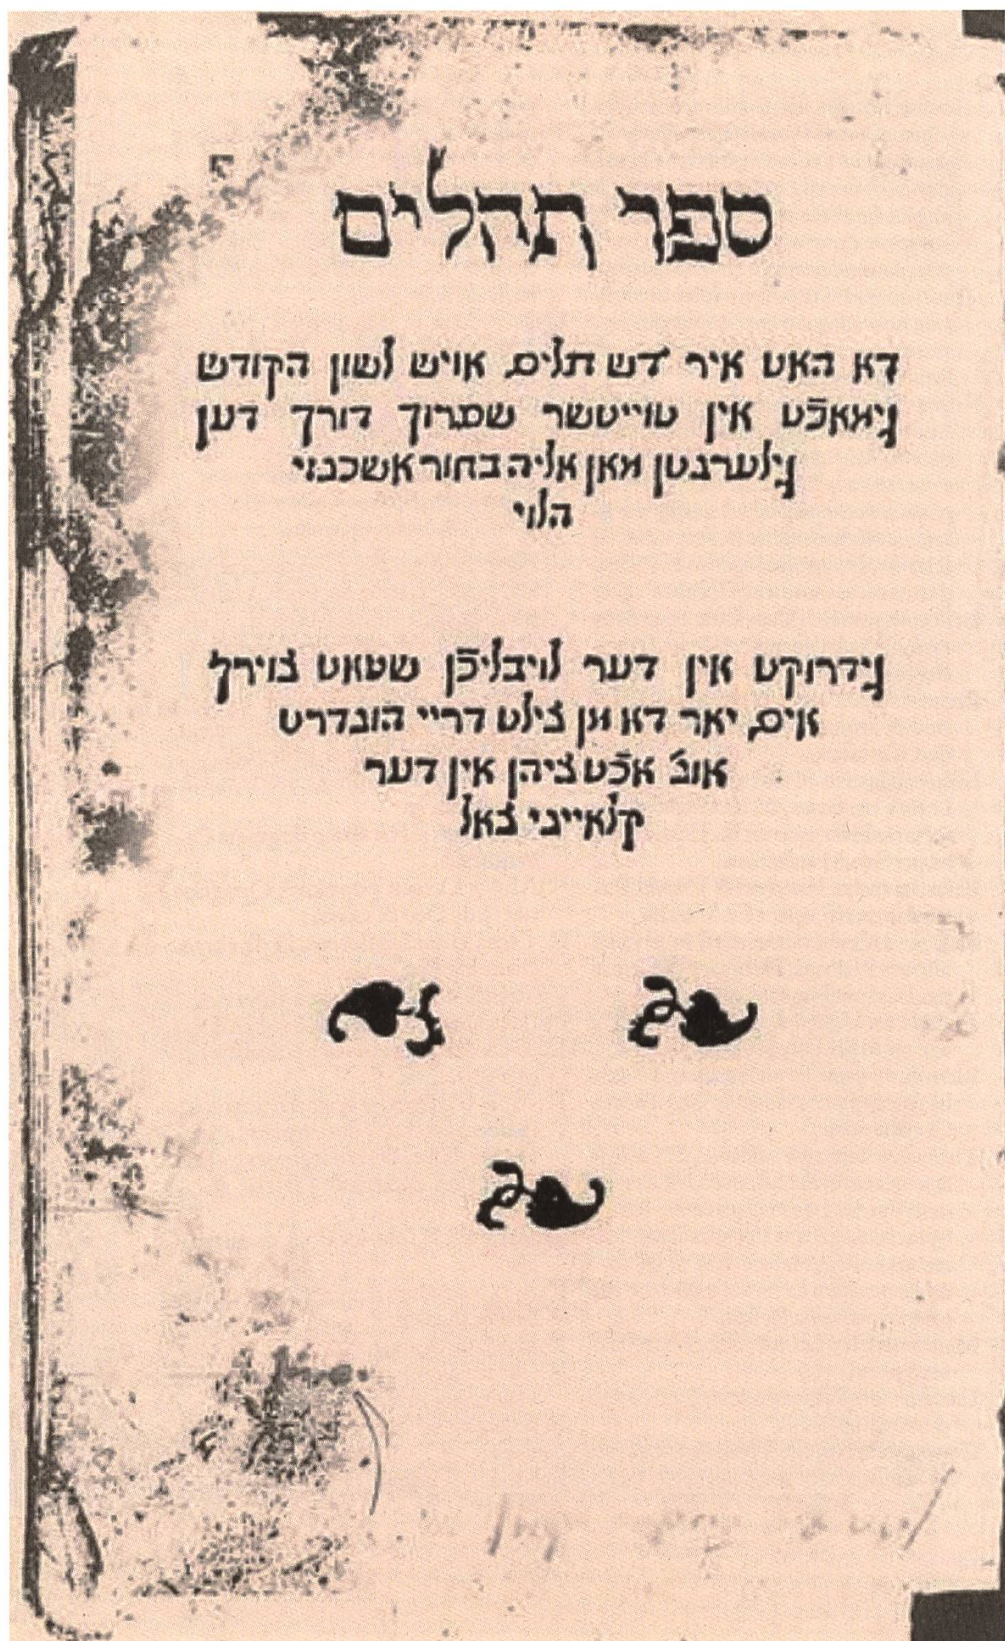 ספר תהלים
דא האט איר דש תלים אויש לשון הקודש
גימאכֿט אין טוייטשר שפרוך דורך דען
גילערנטן מאן אליה בחור אשכנזי
הלוי
גידרוקט אין דער לויבליכֿן שטאט צוירך
אים יאר דא מן צילט דריי הונדרט
אונ' אכֿט ציהן אין דער
קלאייני צאל